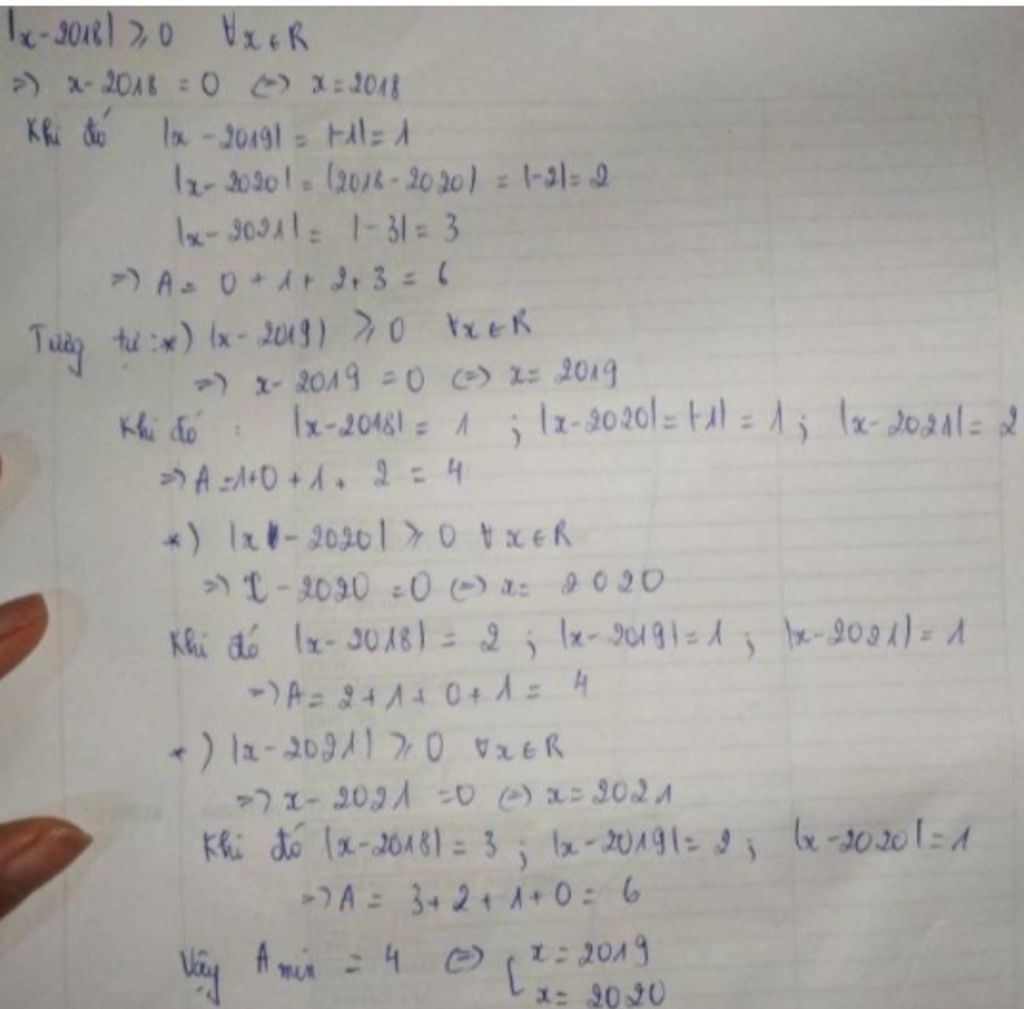 |x-2018| ⩾ 0 ∀x∈R
=> x-2018 = 0 (=) x=2018
Khi đó |x-2019| = |-1| = 1
|x-2020| = (2018-2020) = |-2| = 2
|x-2021| = |-3| = 3
=> A = 0+1+2+3 = 6
Tương tự: *) |x-2019) ⩾ 0 ∀x∈R
=> x-2019 = 0 (=) x= 2019
Khi đó: |x-2018| = 1 ; |x-2020| = |-1| = 1 ; |x-2021| = 2
=> A =1+0+1+ 2 = 4
*) |x-2020| ⩾ 0 ∀x∈R
=> x-2020 =0 (=) x= 2020
Khi đó |x-2018| = 2 ; |x-2019| = 1 ; |x-2021| = 1
=> A = 2+1+0+1 = 4
*) |x-2021| ⩾ 0 ∀x∈R
=> x-2021 =0 (=) x=2021
Khi đó |x-2018| = 3 ; |x-2019| = 2 ; |x-2020| = 1
=> A = 3+2+1+0 = 6
Vậy A min = 4 (=) [ x=2019
x= 2020